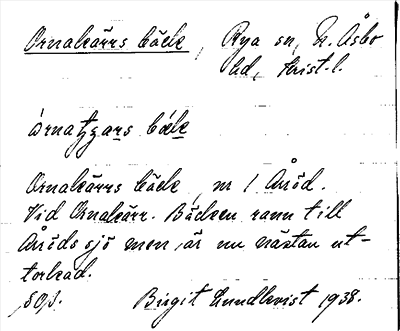 Ornakärrs bäck, Rya sn, N. Åsbo
hd, Krist. l.
Ornakärrs bäck, nr 1 Åröd.
Vid Ornakärr. Bäcken rann till
Åröds sjö men är nu nästan ut-
torkad.
Birgit Lundkvist 1938.